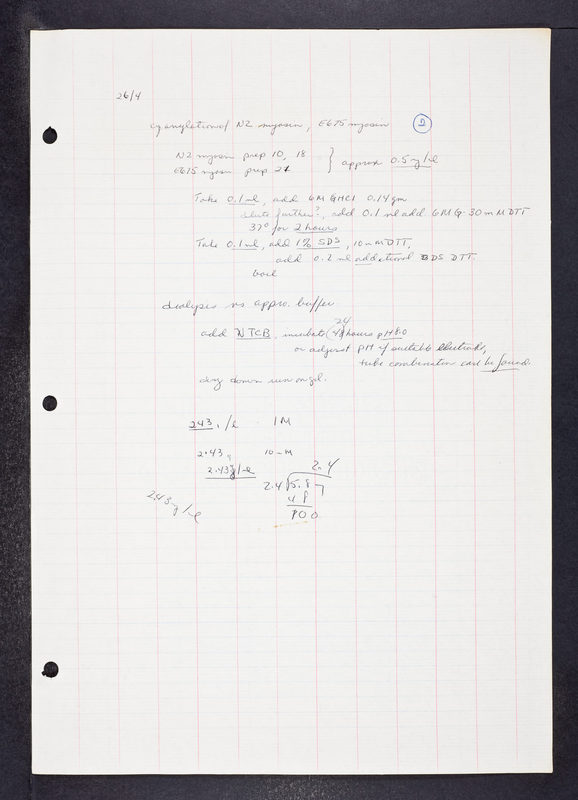 26/4
cyanylation of N2 myosin, E675 myosin D
N2 myosin prep 10, 18
E675 myosin prep 21 } approx 0.5 mg/ml
Take 0.1 ml, add 6M GHCl 0.14 gm
dilute further?, add 0.1 ml add. 6M G. 30 mM DTT
37° for 2 hours
Take 0.1 ml, add 1% SDS, 10 mM DTT,
add 0.2 ml additional SDS DTT
boil
dialysis vs appro. buffer
24
add NTCB, incubate 48 hours pH 8.0
or adjust pH if suitable electrode,
tube combination can be found.
dry down run on gel.
243 g/l 1M
2.43 g 10 mM
2.43 g/l
2.4
2.4 5.8
4 8
100
2.43 g/l